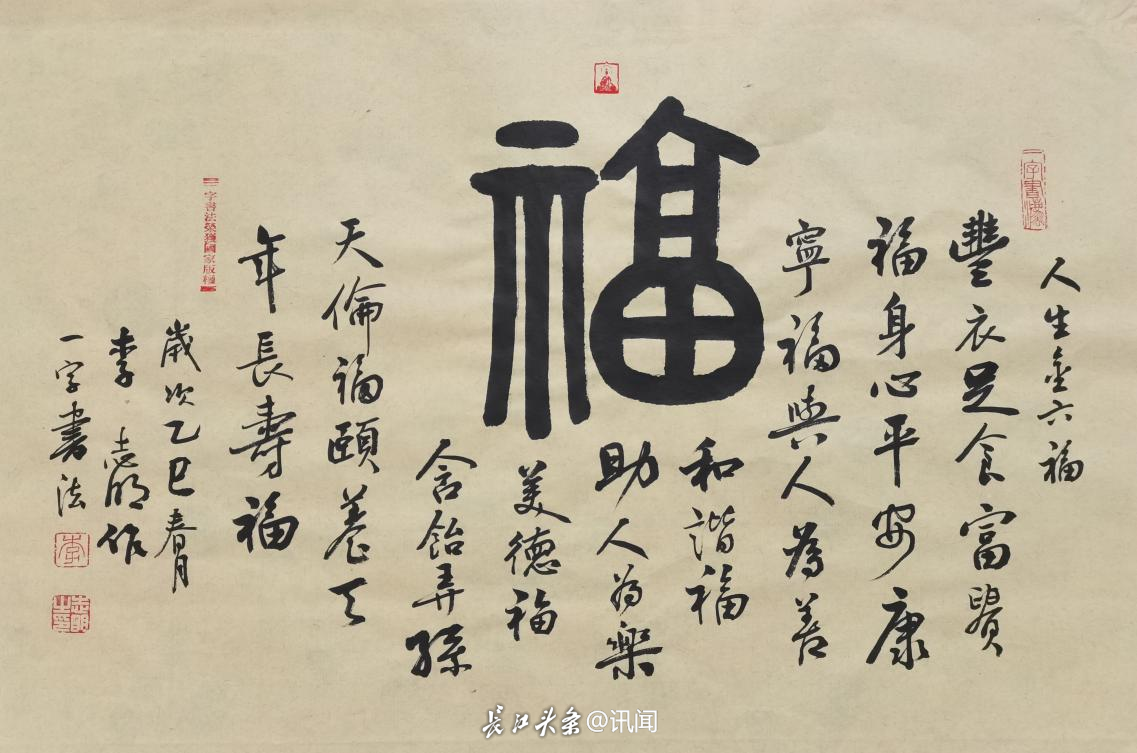 人生金六福
豐衣足食富貴
福身心平安康
寧福與人為善
福
和諧福
助人為樂
美德福
含飴弄孫
天倫福頤養天
年長壽福
一字書法榮獲國家版權
歲次乙巳春月
李志明作
一字書法
李
志明之印
長江头条@讯闻